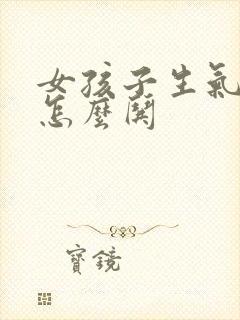 女孩子生氣
怎麼鬨
寶鏡